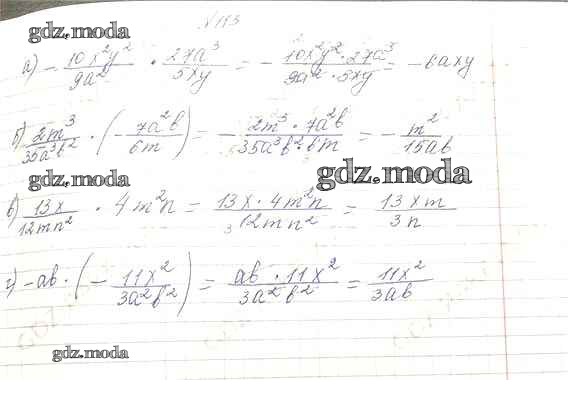 № 113
gdz.moda
а) - 10x²y²/9a² · 27a³/5xy = - 10x²y² · 27a³/9a² · 5xy = -6axy
б) 2m³/35a³b² · (- 7a²b/6m) = - 2m³ · 7a²b/35a³b² · 6m = - m²/15ab
gdz.moda gdz.moda
в) 13x/12mn² · 4m²n = 13x · 4m²n/12mn² = 13xm/3n
г) -ab · (- 11x²/3a²b²) = ab · 11x²/3a²b² = 11x²/3ab
gdz.moda